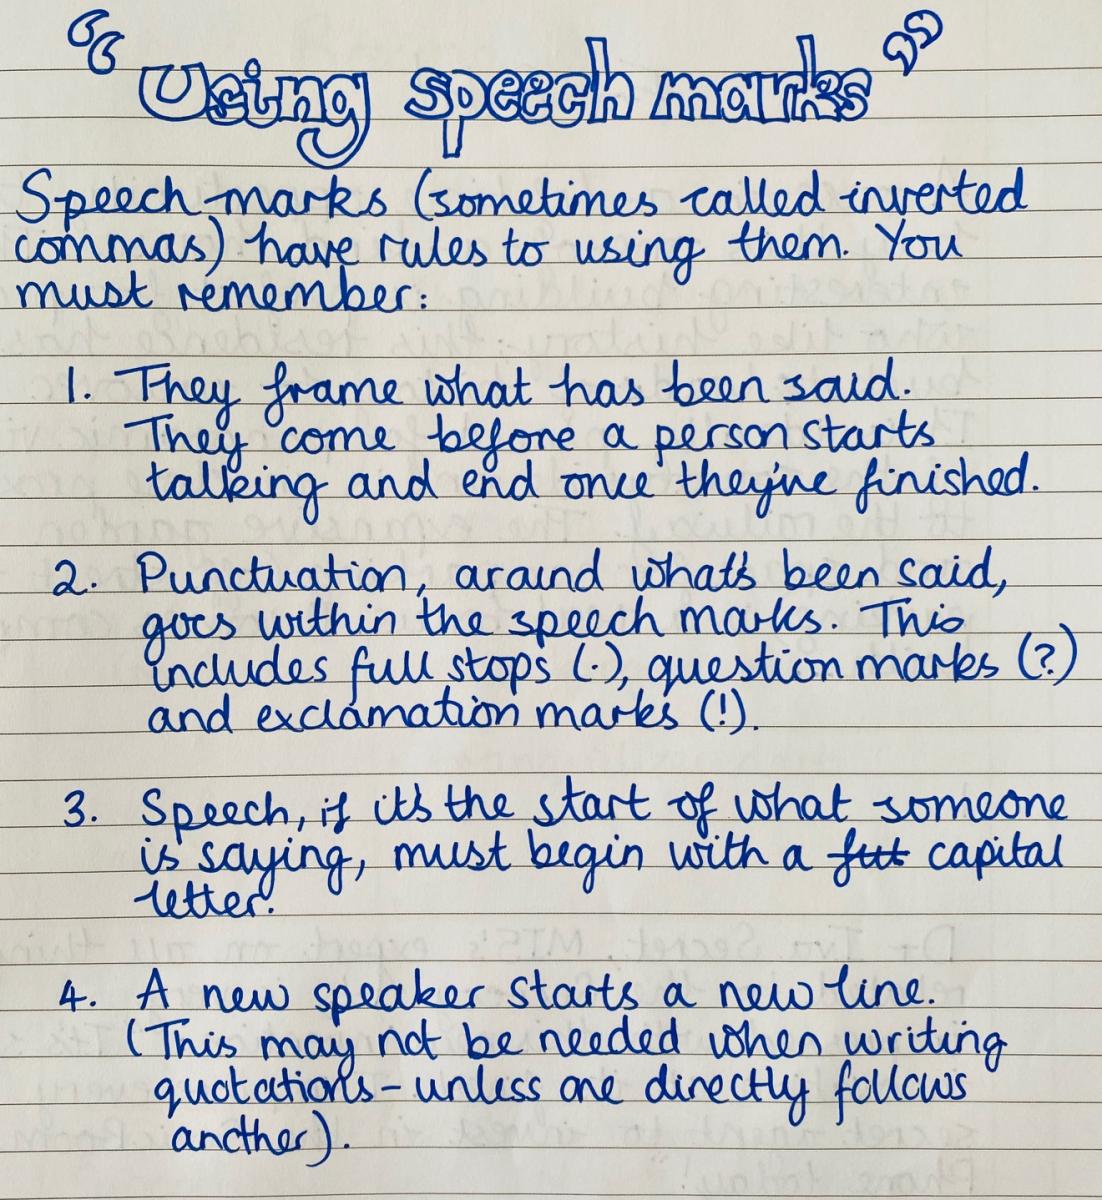 “Using speech marks”
Speech marks (sometimes called inverted
commas) have rules to using them. You
must remember:
1. They frame what has been said.
They come before a person starts
talking and end once they've finished.
2. Punctuation, around what's been said,
goes within the speech marks. This
includes full stops (.), question marks (?)
and exclamation marks (!).
3. Speech, if it's the start of what someone
is saying, must begin with a capital
letter.
4. A new speaker starts a new line.
(This may not be needed when writing
quotations - unless one directly follows
another).